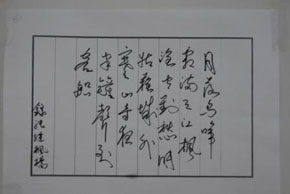 月落乌啼
霜满天江枫
渔火对愁眠
姑蘇城外
寒山寺夜
半鐘聲到
客船
錄张继楓橋